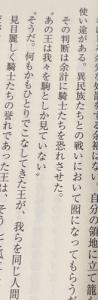 自分の領地に立て籠
使い途がある。異民族たちとの戦いにおいて囮になってもらうだ
その判断は余計に騎士たちを恐れさせた。
〝あの王は我々を駒としか見ていない〟
〝そうだ。何もかもひとりでこなしてきた王が、我らを同じ人間
見目麗しく騎士たちの誉れであった王は、